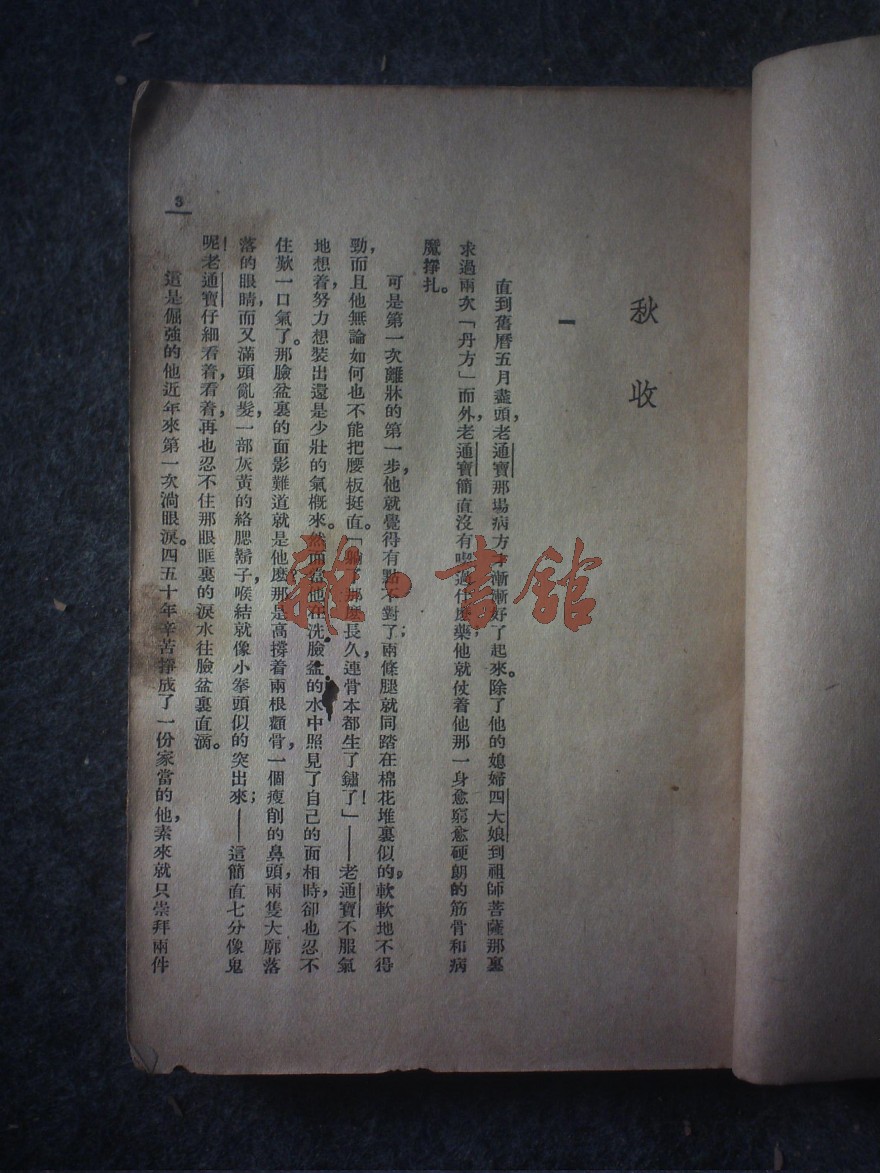 秋收
一
直到舊曆五月盡頭，老通寶那場病方才漸漸好了起來。除了他的媳婦四大娘到祖師菩薩那裏
求過兩次「丹方」而外，老通寶簡直沒有喫過什麽藥；他就仗着他那一身愈窮愈硬朗的筋骨和病
魔掙扎。
可是第一次離牀的第一步，他就覺得有點不對了；兩條腿就同踏在棉花堆裏似的，軟軟地不得
勁，而且他無論如何也不能把腰板挺直。「躺了那麽長久，連骨本都生了鏽了！」——老通寶不服氣
地想着，努力想裝出還是少壯的氣概來。然而當他在洗臉盆的水中照見了自己的面相時，卻也忍不
住歎一口氣了。那臉盆裏的面影難道就是他麽？那是高撐着兩根顴骨，一個瘦削的鼻頭，兩隻大廓落
落的眼睛，而又滿頭亂髮，一部灰黃的絡腮鬍子，喉結就像小拳頭似的突出來；——這簡直七分像鬼
呢！老通寶仔細看着，看着，再也忍不住那眼眶裏的淚水往臉盆裏直滴。
這是倔強的他近年來第一次淌眼淚。四五十年辛苦掙成了一份家當的他，素來就只崇拜兩件
3
雜·書館